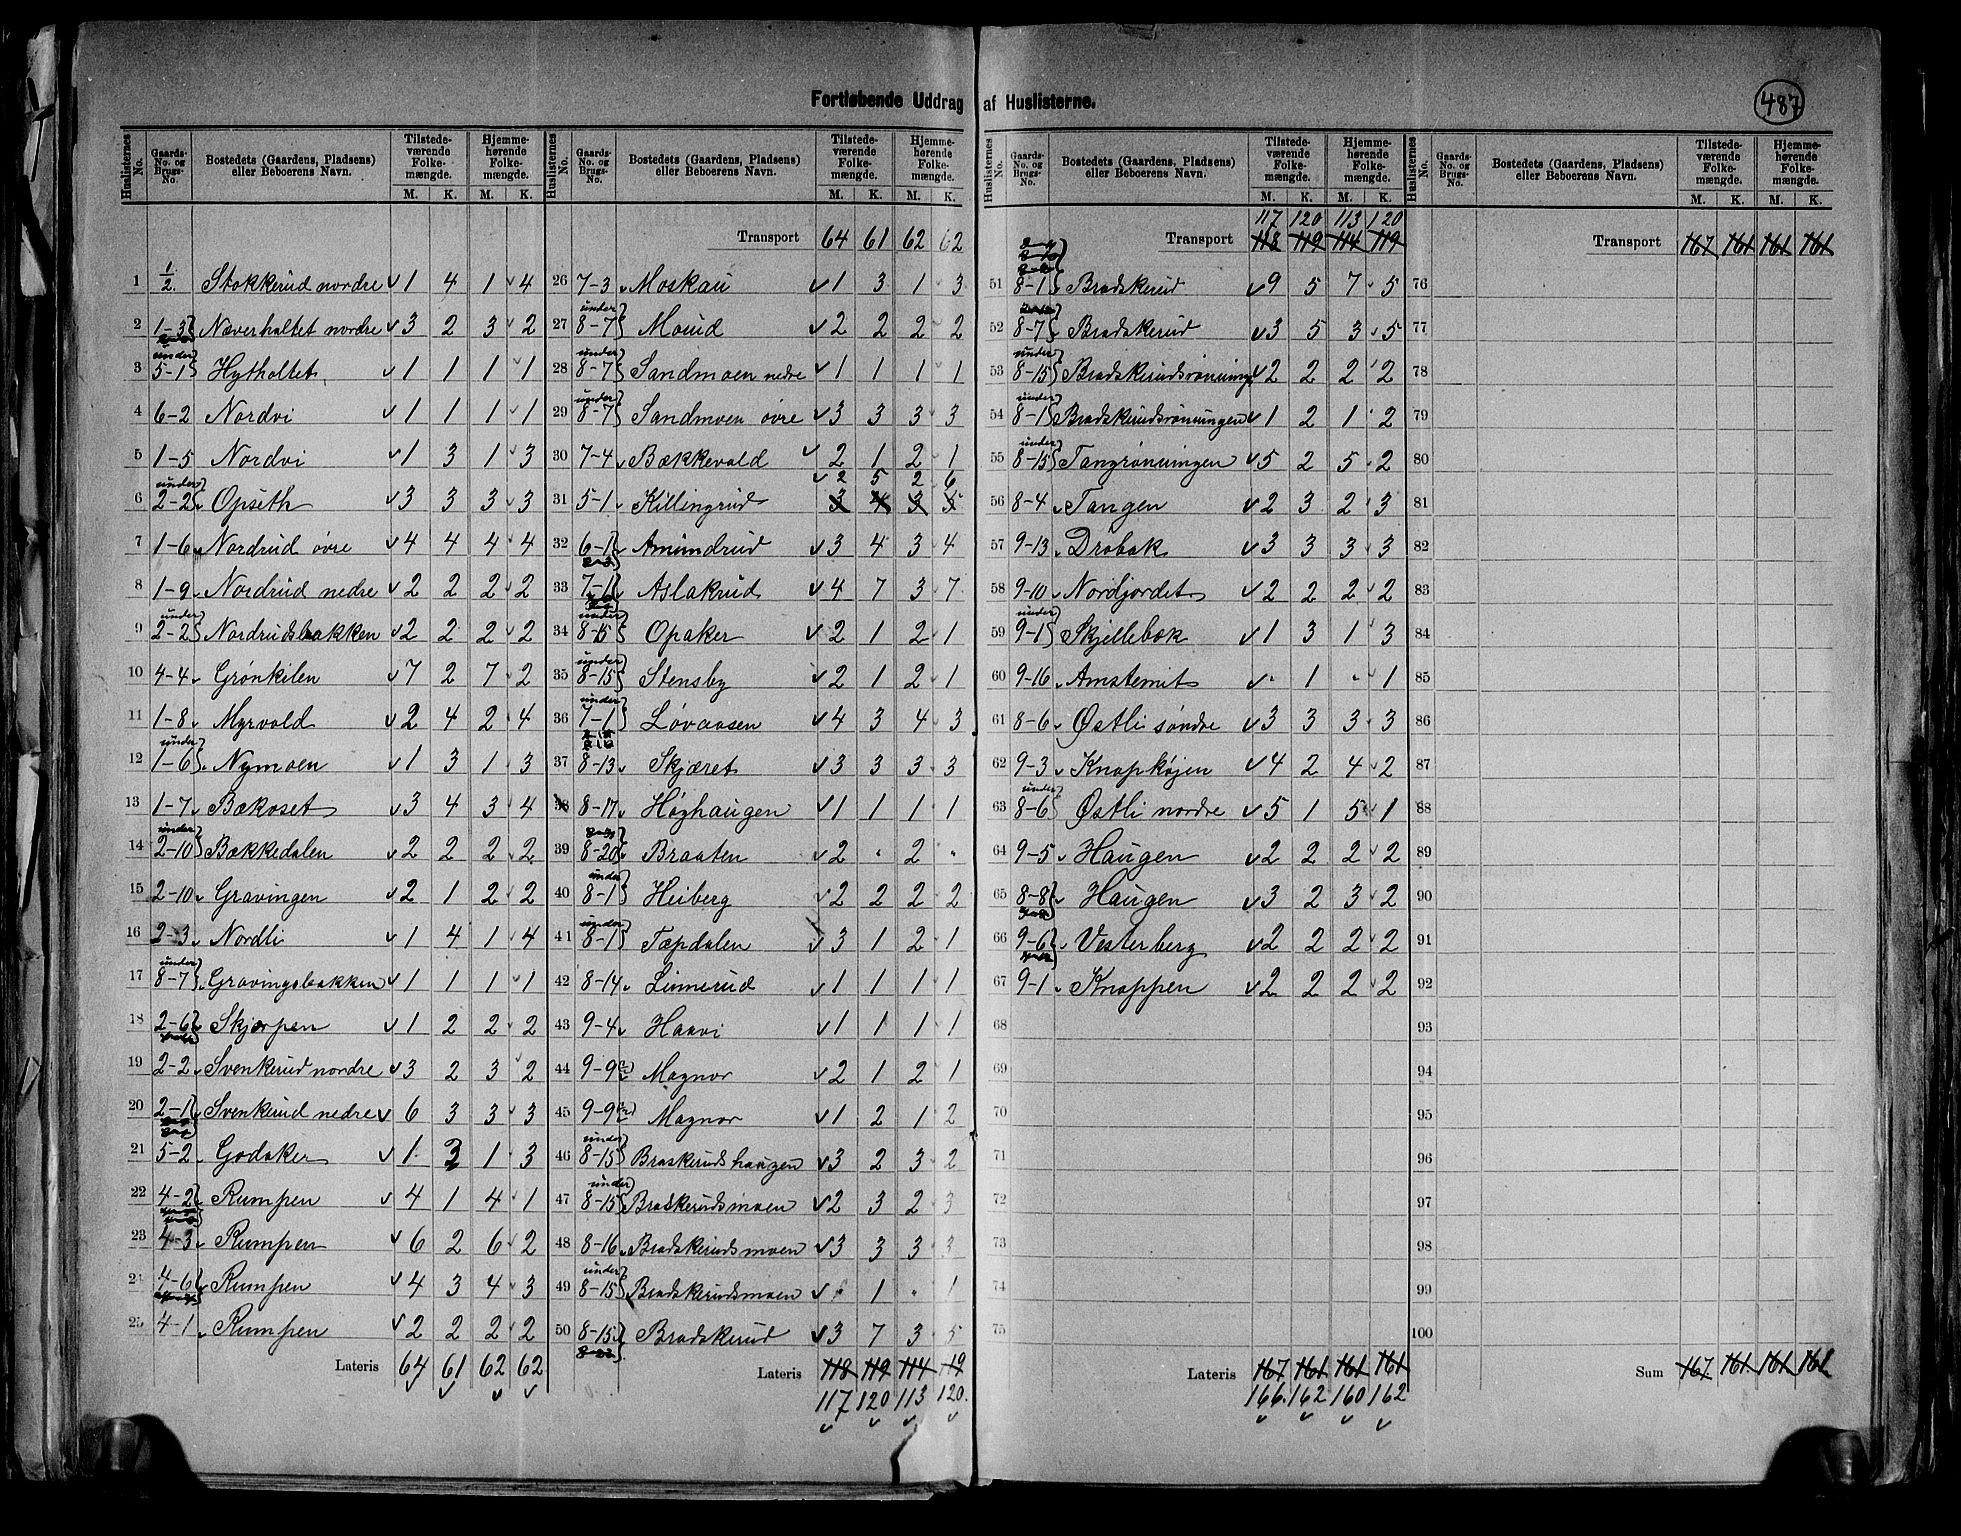 Fortløbende Uddrag af Huslisterne.
487
Huslisternes No. | Gaards-No. og Brugs-No. | Bostedets (Gaardens, Pladsens) eller Beboerens Navn. | Tilstedeværende Folkemængde. M. K. | Hjemmehørende Folkemængde. M. K.
1 1/2 Stokkerud nordre 1 4 1 4
2 1-3 Næverholtet nordre 3 2 3 2
3 under 5-1 Hytholtet 1 1 1 1
4 6-2 Nordvi 1 1 1 1
5 1-5 Nordvi 1 3 1 3
6 under 2-2 Opseth 3 3 3 3
7 1-6 Nordrud øvre 4 4 4 4
8 1-9 Nordrud nedre 2 2 2 2
9 under 2-2 Nordrudsbakken 2 2 2 2
10 4-4 Grønkilen 7 2 7 2
11 1-8 Myrvold 2 4 2 4
12 under 1-6 Nymoen 1 3 1 3
13 1-7 Bækoset 3 4 3 4
14 under 2-10 Bækkedalen 2 2 2 2
15 2-10 Gravingen 2 1 2 2
16 2-3 Nordli 1 4 1 4
17 under 8-7 Gravingsbakken 1 1 1 1
18 2-6 Skjærpen 1 2 2 2
19 2-2 Svenkerud nordre 3 2 3 2
20 2-1 Svenkerud nedre 6 3 3 3
21 5-2 Godaker 1 3 1 3
22 4-2 Rumpen 4 1 4 1
23 4-3 Rumpen 6 2 6 2
24 4-6 Rumpen 4 3 4 3
25 4-1 Rumpen 2 2 2 2
Lateris 64 61 62 62
Huslisternes No. | Gaards-No. og Brugs-No. | Bostedets (Gaardens, Pladsens) eller Beboerens Navn. | Tilstedeværende Folkemængde. M. K. | Hjemmehørende Folkemængde. M. K.
Transport 64 61 62 62
26 7-3 Moskau 1 3 1 3
27 under 8-7 Moud 2 2 2 2
28 under 8-7 Sandmoen nedre 1 1 1 1
29 under 8-7 Sandmoen øvre 3 3 3 3
30 7-4 Bækkevold 2 1 2 1
2 5 2 6
31 5-1 Killingrud 3 4 3 5
32 6-1 Amundrud 3 4 3 4
33 7-1 Aslakrud 4 7 3 7
34 under 8-15 Opaker 2 1 2 1
35 under 8-15 Stensby 2 1 2 1
36 under 7-1 Løvaasen 4 3 4 3
37 8-13 Skjæret 3 3 3 3
38 8-17 Høghaugen 1 1 1 1
39 8-20 Braaten 2 " 2 "
40 under 8-1 Heiberg 2 2 2 2
41 under 8-1 Tæpdalen 3 1 2 1
42 8-14 Linnerud 1 1 1 1
43 9-4 Haavi 1 1 1 1
44 9-9 Magnor 2 1 2 1
45 9-9 Magnor 1 2 1 2
46 under 8-15 Braskerudshaugen 3 2 3 2
47 under 8-15 Braskerudsmoen 2 3 2 3
48 8-16 Bradskerudsmoen 3 3 3 3
49 under 8-15 Bradskerudsmoen " 1 " 1
50 8-15 Bradskerud 3 7 3 5
Lateris 118 119 114 119
117 120 113 120.
Huslisternes No. | Gaards-No. og Brugs-No. | Bostedets (Gaardens, Pladsens) eller Beboerens Navn. | Tilstedeværende Folkemængde. M. K. | Hjemmehørende Folkemængde. M. K.
117 120 113 120
Transport 118 119 114 119
51 8-1 Bradskerud 9 5 7 5
52 8-7 Bradskerud 3 5 3 5
53 under 8-15 Bradskerudsrønning 2 2 2 2
54 under 8-1 Bradskerudsrønningen 1 2 1 2
55 under 8-15 Tangrønningen 5 2 5 2
56 8-4 Tangen 2 3 2 3
57 9-13 Drøbak 3 3 3 3
58 9-10 Nordjordet 2 2 2 2
59 under 9-1 Skjellebæk 1 3 1 3
60 9-16 Amstemit " 1 " 1
61 8-6 Østli søndre 3 3 3 3
62 9-3 Knapkøjen 4 2 4 2
63 under 8-6 Østli nordre 5 1 5 1
64 9-5 Haugen 2 2 2 2
65 8-8 Haugen 3 2 3 2
66 9-6 Vesterberg 2 2 2 2
67 9-1 Knappen 2 2 2 2
68
69
70
71
72
73
74
75
Lateris 167 161 161 161
166. 162 160 162
Huslisternes No. | Gaards-No. og Brugs-No. | Bostedets (Gaardens, Pladsens) eller Beboerens Navn. | Tilstedeværende Folkemængde. M. K. | Hjemmehørende Folkemængde. M. K.
Transport 167 161 161 161
76
77
78
79
80
81
82
83
84
85
86
87
88
89
90
91
92
93
94
95
96
97
98
99
100
Sum 167 161 161 161